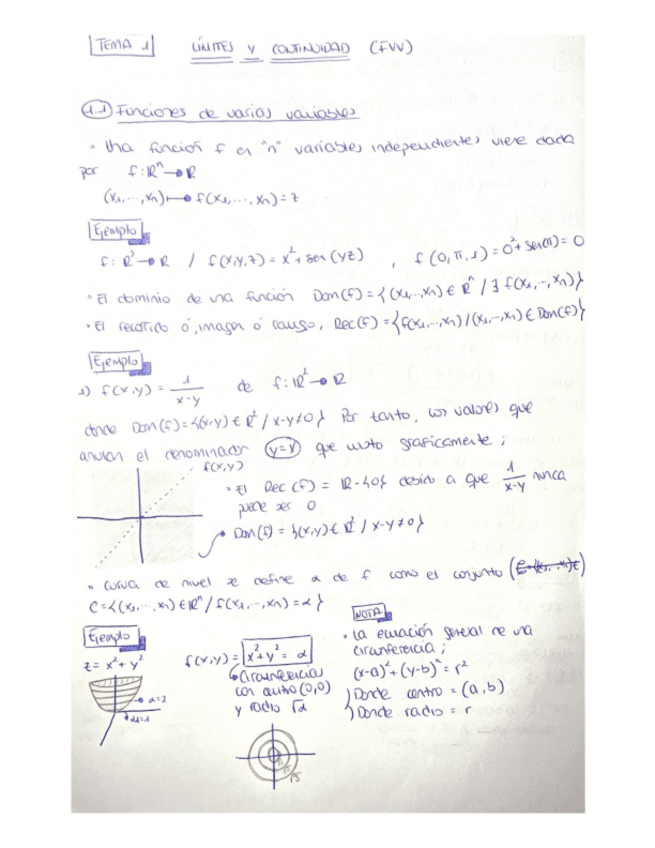 TEMA 1 LÍMITES Y CONTINUIDAD (FVV)
1.1 Funciones de varias variables
· Una función f en "n" variables independientes viene dada
por f: ℝⁿ → ℝ
(x₁,...,xₙ) ↦ f(x₁,...,xₙ) = z
Ejemplo
f: ℝ³ → ℝ / f(x,y,z) = x² + sen(yz) , f(0,π,1) = 0² + sen(π) = 0
· El dominio de una función Dom(f) = {(x₁,...,xₙ) ∈ ℝⁿ / ∃ f(x₁,...,xₙ)}
· El recorrido ó, imagen ó rango, Rec(f) = {f(x₁,...,xₙ) / (x₁,...,xₙ) ∈ Dom(f)}
Ejemplo
1) f(x,y) = 1/(x-y) de f: ℝ² → ℝ
donde Dom(f) = {(x,y) ∈ ℝ² / x-y≠0} Por tanto, los valores que
anulan el denominador y=x que graficamente;
f(x,y)
· El Rec(f) = ℝ-{0} debido a que 1/(x-y) nunca
puede ser 0
· Dom(f) = {(x,y) ∈ ℝ² / x-y≠0}
· Curva de nivel se define α de f como el conjunto
C = {(x₁,...,xₙ) ∈ ℝⁿ / f(x₁,...,xₙ) = α}
Ejemplo
z = x² + y²
α=2
α=1
f(x,y) = x² + y² = α
Circunferencias
con centro (0,0)
y radio √α
NOTA
· La ecuación general de una
circunferencia;
(x-a)² + (y-b)² = r²
Donde centro = (a,b)
Donde radio = r